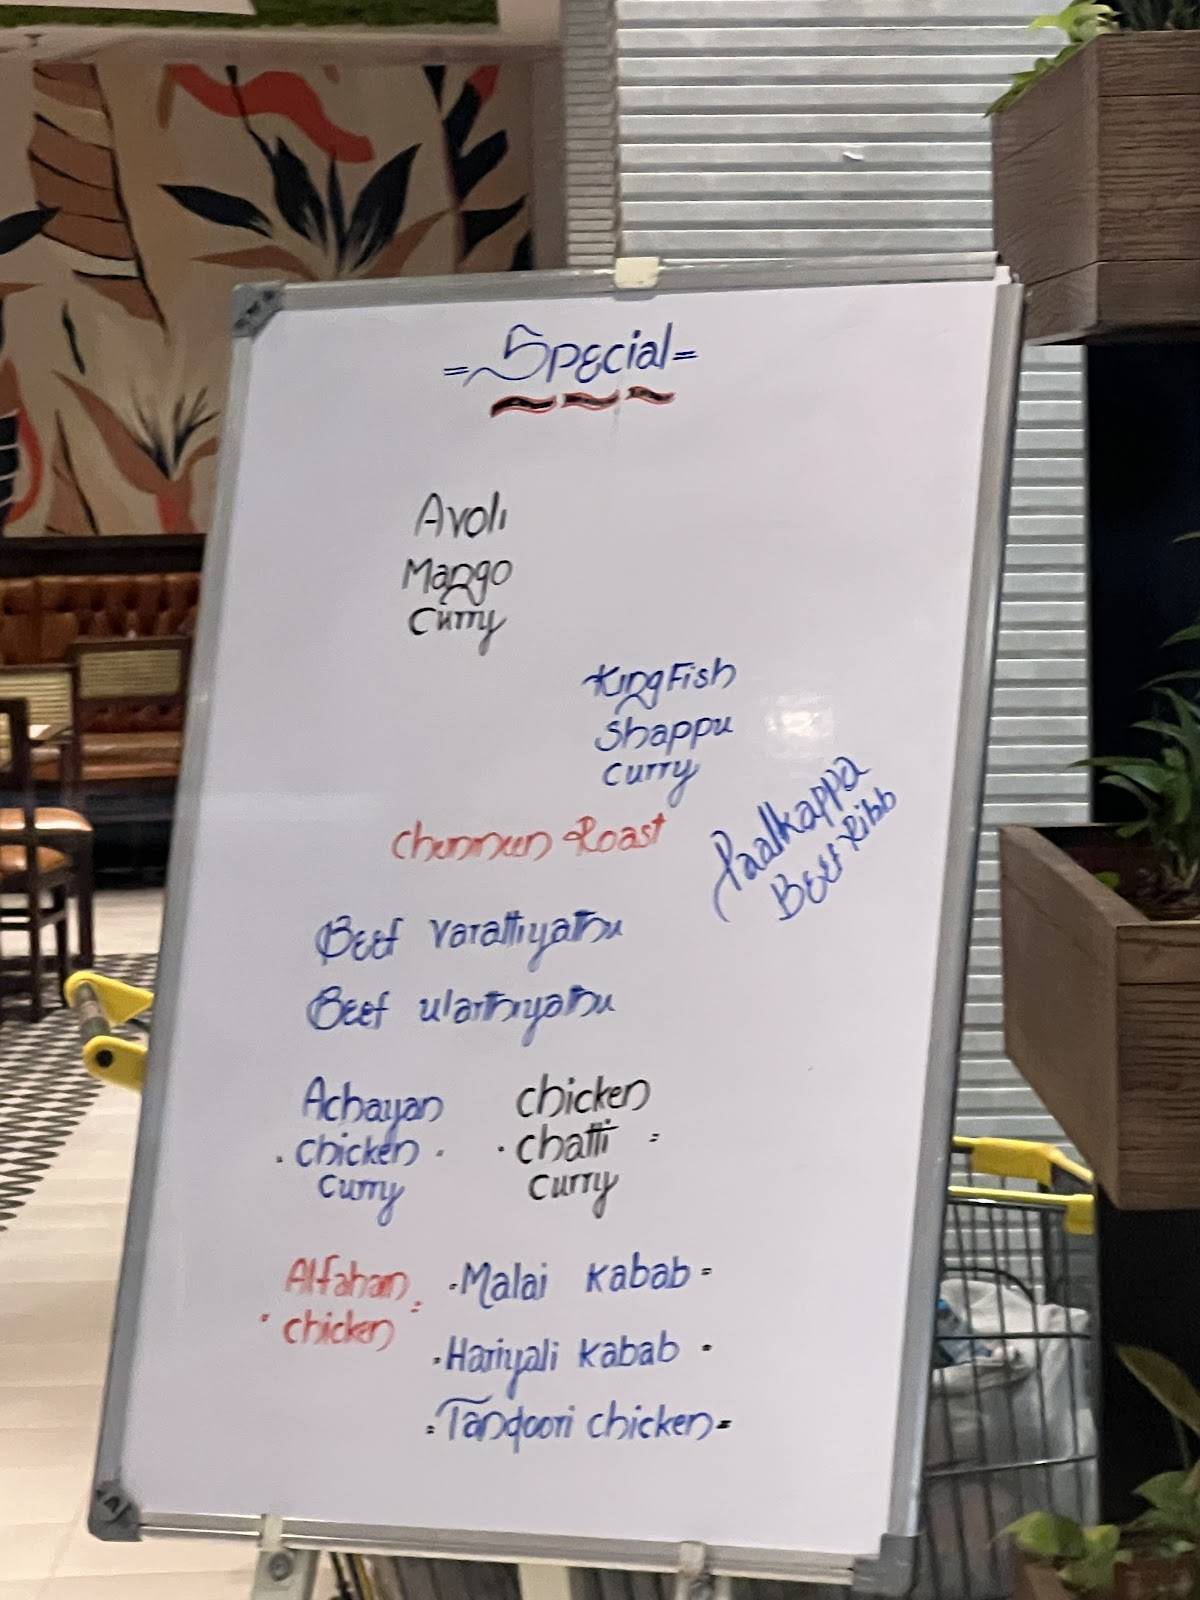 Special
Avoli
Mango
Curry
King Fish
Shappu
Curry
Paalkappa
Beef Ribb
Chemmeen Roast
Beef Varattiyathu
Beef ularthiyathu
Achayan
Chicken
Curry
Chicken
Chatti
Curry
Alfaham
Chicken
Malai Kabab
Hariyali Kabab
Tandoori chicken